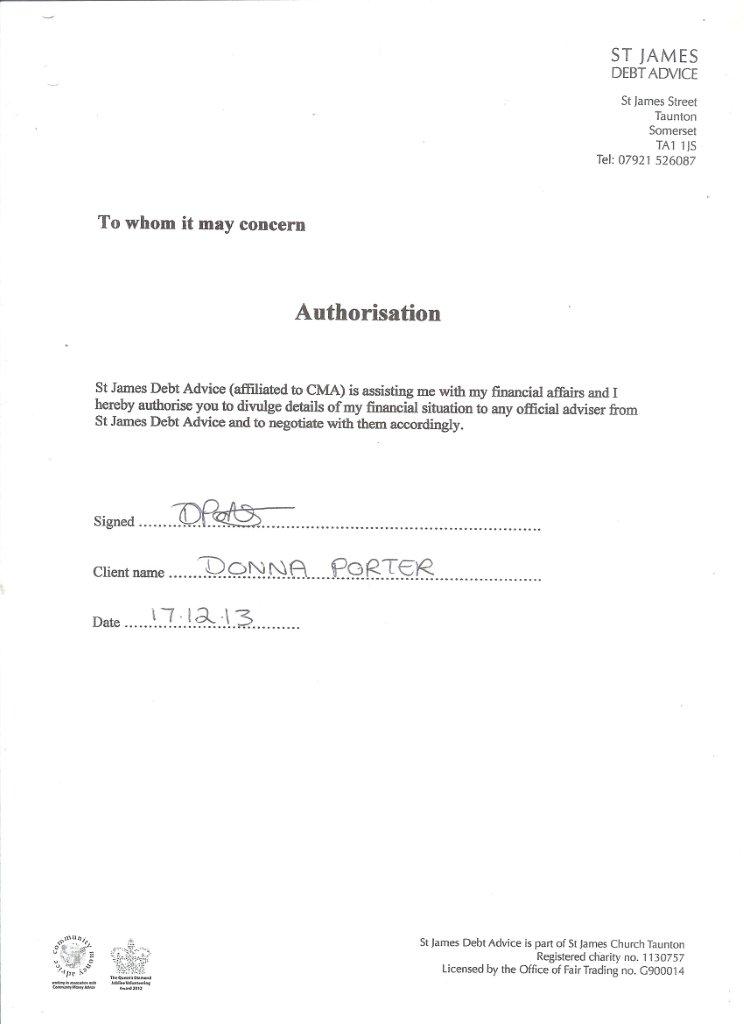 ST JAMES
DEBT ADVICE
St James Street
Taunton
Somerset
TA1 1JS
Tel: 07921 526087
To whom it may concern
Authorisation
St James Debt Advice (affiliated to CMA) is assisting me with my financial affairs and I
hereby authorise you to divulge details of my financial situation to any official adviser from
St James Debt Advice and to negotiate with them accordingly.
Signed
Client name DONNA PORTER
Date 17.12.13
community money advice
working in association with
Community Money Advice
The Queen's Diamond
Jubilee Volunteering
Award 2012
St James Debt Advice is part of St James Church Taunton
Registered charity no. 1130757
Licensed by the Office of Fair Trading no. G900014